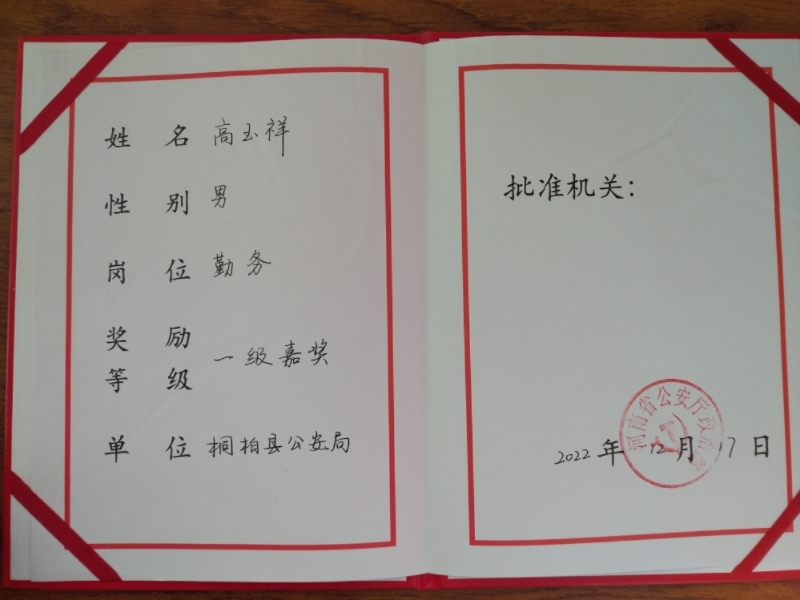 姓名 高玉祥
性别 男
岗位 勤务
奖励等级 一级嘉奖
单位 桐柏县公安局
批准机关：
河南省公安厅政治部
2022年12月17日